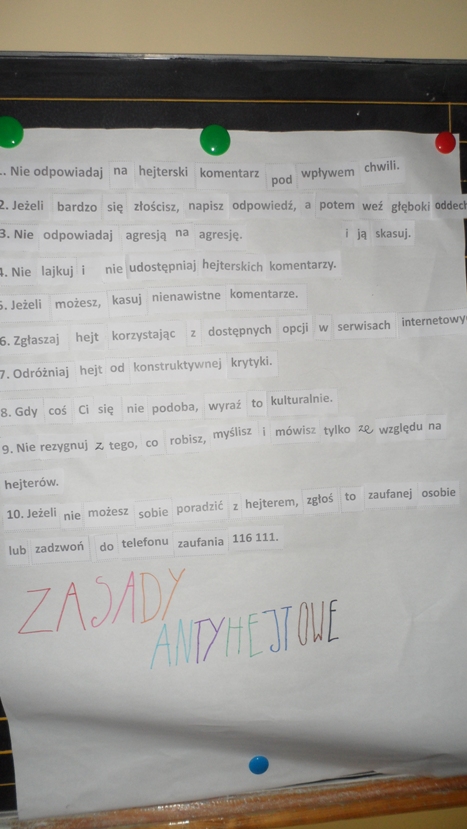 1. Nie odpowiadaj na hejterski komentarz pod wpływem chwili.
2. Jeżeli bardzo się złościsz, napisz odpowiedź, a potem weź głęboki oddech
3. Nie odpowiadaj agresją na agresję. i ją skasuj.
4. Nie lajkuj i nie udostępniaj hejterskich komentarzy.
5. Jeżeli możesz, kasuj nienawistne komentarze.
6. Zgłaszaj hejt korzystając z dostępnych opcji w serwisach internetowy
7. Odróżniaj hejt od konstruktywnej krytyki.
8. Gdy coś Ci się nie podoba, wyraź to kulturalnie.
9. Nie rezygnuj z tego, co robisz, myślisz i mówisz tylko ze względu na
hejterów.
10. Jeżeli nie możesz sobie poradzić z hejterem, zgłoś to zaufanej osobie
lub zadzwoń do telefonu zaufania 116 111.
ZASADY
ANTYHEJTOWE